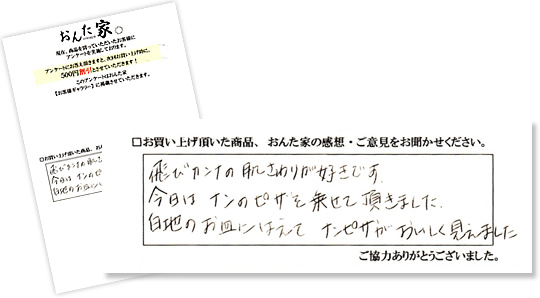 おんた家。
現在、商品を買っていただいたお客様に
アンケートを実施しております。
アンケートにお答え頂きますと、次回お買い上げ時に、
500円割引とさせていただきます!
このアンケートはおんた家
【お客様ギャラリー】に掲載させていただきます。
□お買い上げ頂いた商品、おん
飛びカンナの肌さ
今日は ナンのピザ
白地のお皿には
□お買い上げ頂いた商品、おんた家の感想・ご意見をお聞かせください。
飛びカンナの肌ざわりが好きです.
今日は ナンのピザを乗せて頂きました.
白地のお皿にはえて ナンピザがおいしく見えました
ご協力ありがとうございました。